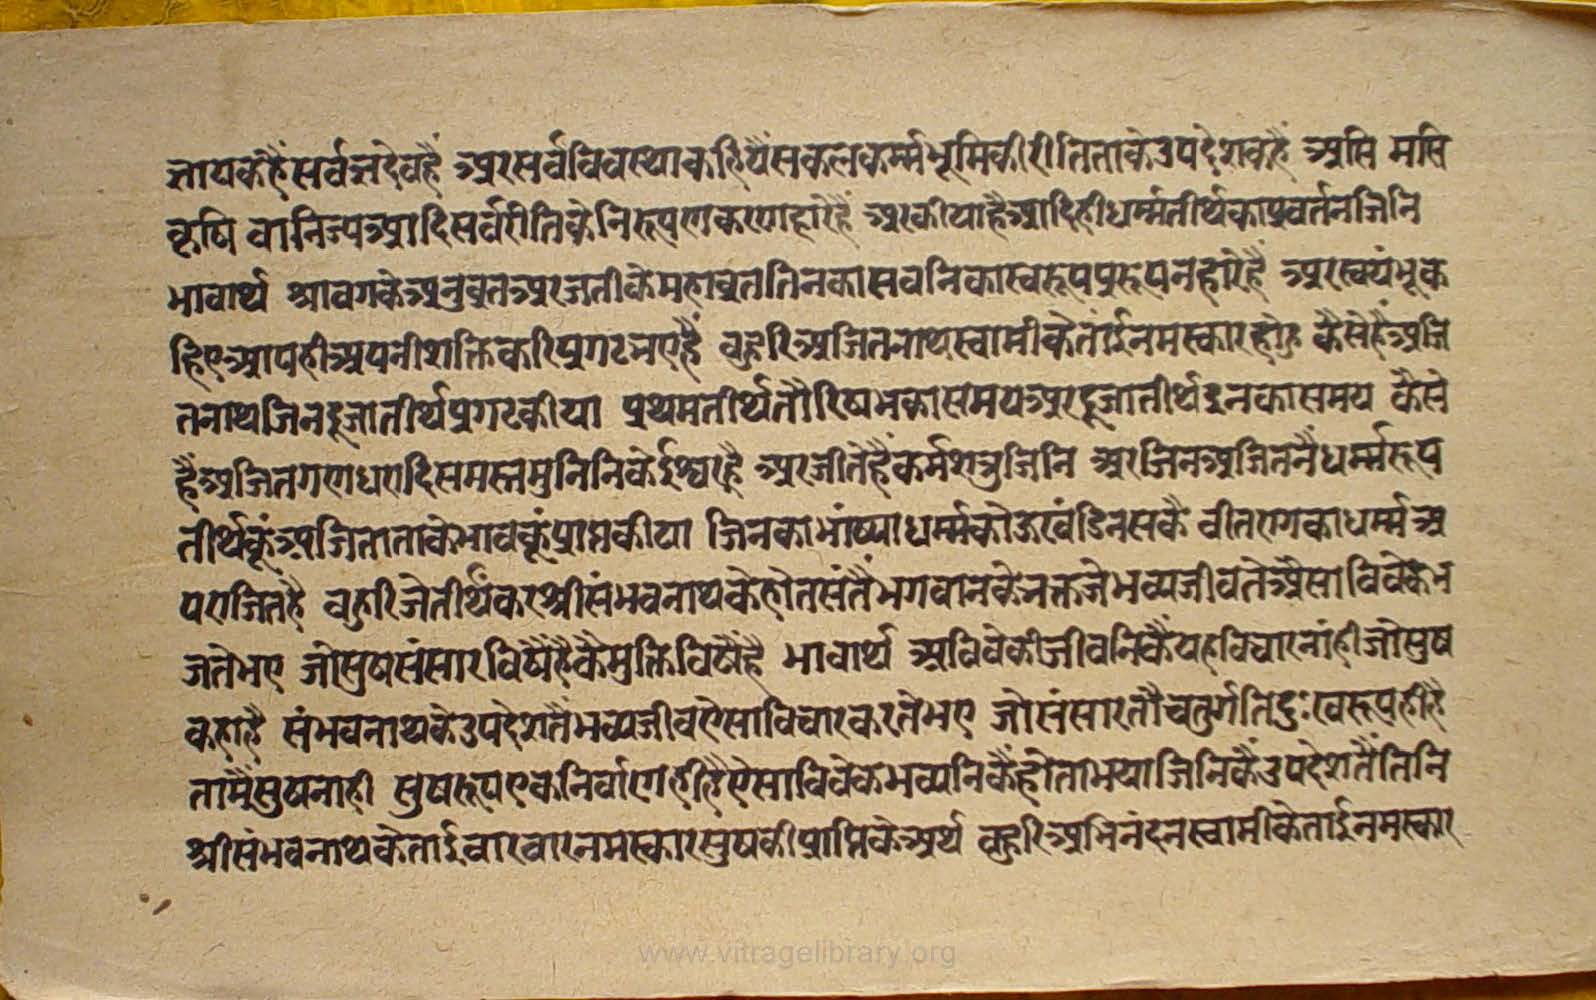 नायक हैं सर्वज्ञदेव हैं अर सर्व विवस्था कहियैं सकल कर्म्मभूमि की रीति ताके उपदेशक हैं असि मसि
कृषि वानिज्य आदि सर्व रीति के निरूपण करणहारे हैं अर कीया है आदि ही धर्म्मतीर्थ का प्रवर्तन जिनि
भावार्थ श्रावग के अनुव्रत अर जती के महाव्रत तिनका सवनिका स्वरूप प्ररूपनहारे हैं अर स्वयंभू क
हिए आप ही अपनी शक्ति करि प्रगट भए हैं वहुरि अजितनाथ स्वामी के तांई नमस्कार होहु कैसे हैं अजि
तनाथ जिन दूजा तीर्थ प्रगट कीया प्रथम तीर्थ तौ रिषभ का समय अर दूजा तीर्थ इनका समय कैसे
हैं अजित गणधरादि समस्त मुनिनि के ईश्वर है अर जीते हैं कर्मशत्रु जिनि अर जिन अजित नैं धर्म्मरूप
तीर्थ कूं अजितता ताके भाव कूं प्राप्त कीया जिनका भांष्या धर्म्म कोऊ खंडि न सकै वीतराग का धर्म्म अ
पराजित है वहुरि जे तीर्थंकर श्रीसंभवनाथ के होत संतैं भगवान के भक्त जे भव्यजीव ते अैसा विवेक भ
जते भए जो सुष संसार विषैं है कै मुक्ति विषैं है भावार्थ अविवेकी जीवनि कैं यह विचार नांही जो सुष
कहा है संभवनाथ के उपदेश तैं भव्यजीव ऐसा विचार करते भए जो संसार तौ चतुर्गति दुःखरूप ही है
तामैं सुष नाही सुषरूप एक निर्वाण ही है ऐसा विवेक भव्यनि कैं होता भया जिनि कैं उपदेश तैं तिनि
श्रीसंभवनाथ के तांई वारवार नमस्कार सुष की प्राप्ति के अर्थ वहुरि अभिनंदन स्वामी के तांई नमस्कार
www.vitragelibrary.org